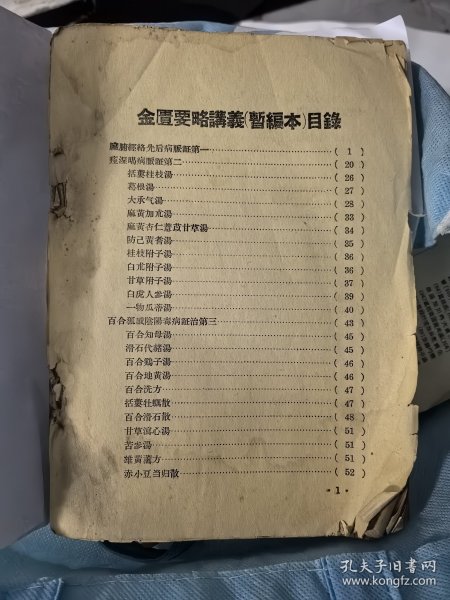 金匱要略講義(暫編本)目錄
臟腑經絡先后病脈証第一……(1)
痙湿暍病脈証第二……(20)
括蔞桂枝湯……(26)
葛根湯……(27)
大承气湯……(28)
麻黃加朮湯……(33)
麻黃杏仁薏苡甘草湯……(34)
防己黃耆湯……(35)
桂枝附子湯……(36)
白朮附子湯……(36)
甘草附子湯……(37)
白虎人参湯……(39)
一物瓜蒂湯……(40)
百合狐惑陰陽毒病証治第三……(43)
百合知母湯……(45)
滑石代赭湯……(45)
百合鷄子湯……(46)
百合地黃湯……(46)
百合洗方……(47)
括蔞牡蠣散……(47)
百合滑石散……(48)
甘草瀉心湯……(51)
苦参湯……(51)
雄黃薰方……(51)
赤小豆当归散……(52)
·1·
孔夫子旧书网
www.kongfz.com